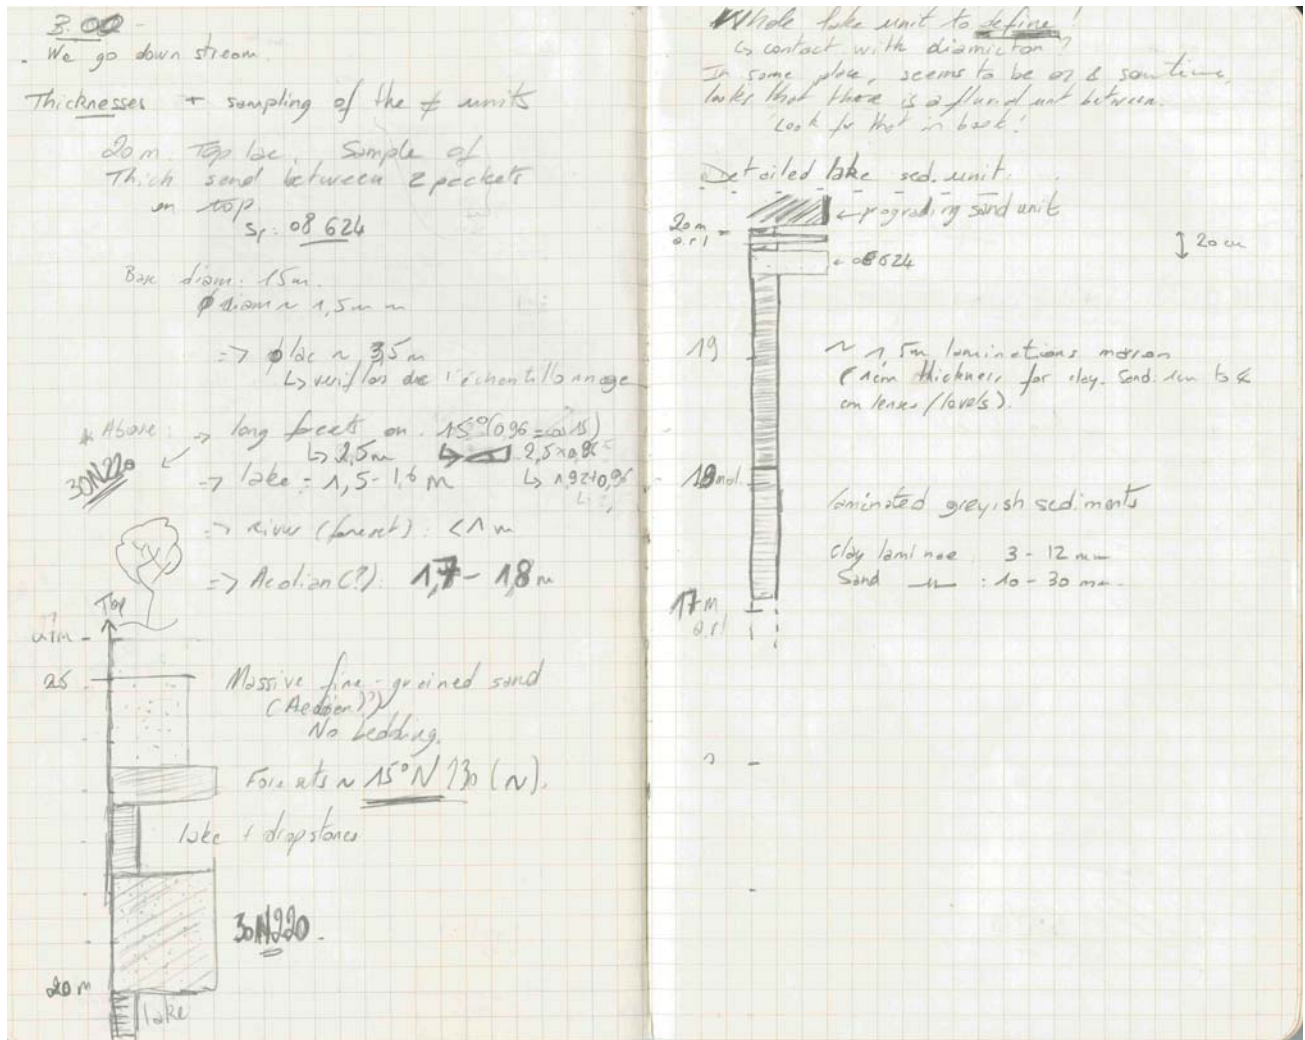 3.00
. We go down stream.
Thicknesses + sampling of the ≠ units
20 m. Top lac. Sample of
Thick sand between 2 pockets
on top.
Sp: 08 624
Base diam: 15m.
ϕ diam ~ 1,5 m
=> ϕ lac ~ 3,5 m
↳ verif lors de l'échantillonnage
* Above: => long foresets on 15° (0,96 =
↳ 2,5m ↳ 2,5x0,96
30N220
=> lake = 1,5 - 1,6 m
=> river (foreset): <1 m
=> Aeolian (?): 1,7 - 1,8 m
Top
25
Massive fine-grained sand
(Aeolian ?)
No bedding.
Foresets ~ 15° N 230 (~).
lake + dropstones
30N220.
20 m
lake
Whole lake unit to define!
↳ contact with diamicton?
In some place, seems to be & sometime,
looks that there is a fluvial unit between.
Look for that in back!
Detailed lake sed. unit.
← prograding sand unit
20m
a.r.l
20 cm
← 08624
19
~ 1,5m laminations
(1cm thickness for clay. Sand: 1cm to 4
cm lenses (levels).
18
laminated greyish sediments
Clay laminae 3 - 12 mm
Sand : 10 - 30 mm
17 m
a.r.l
?